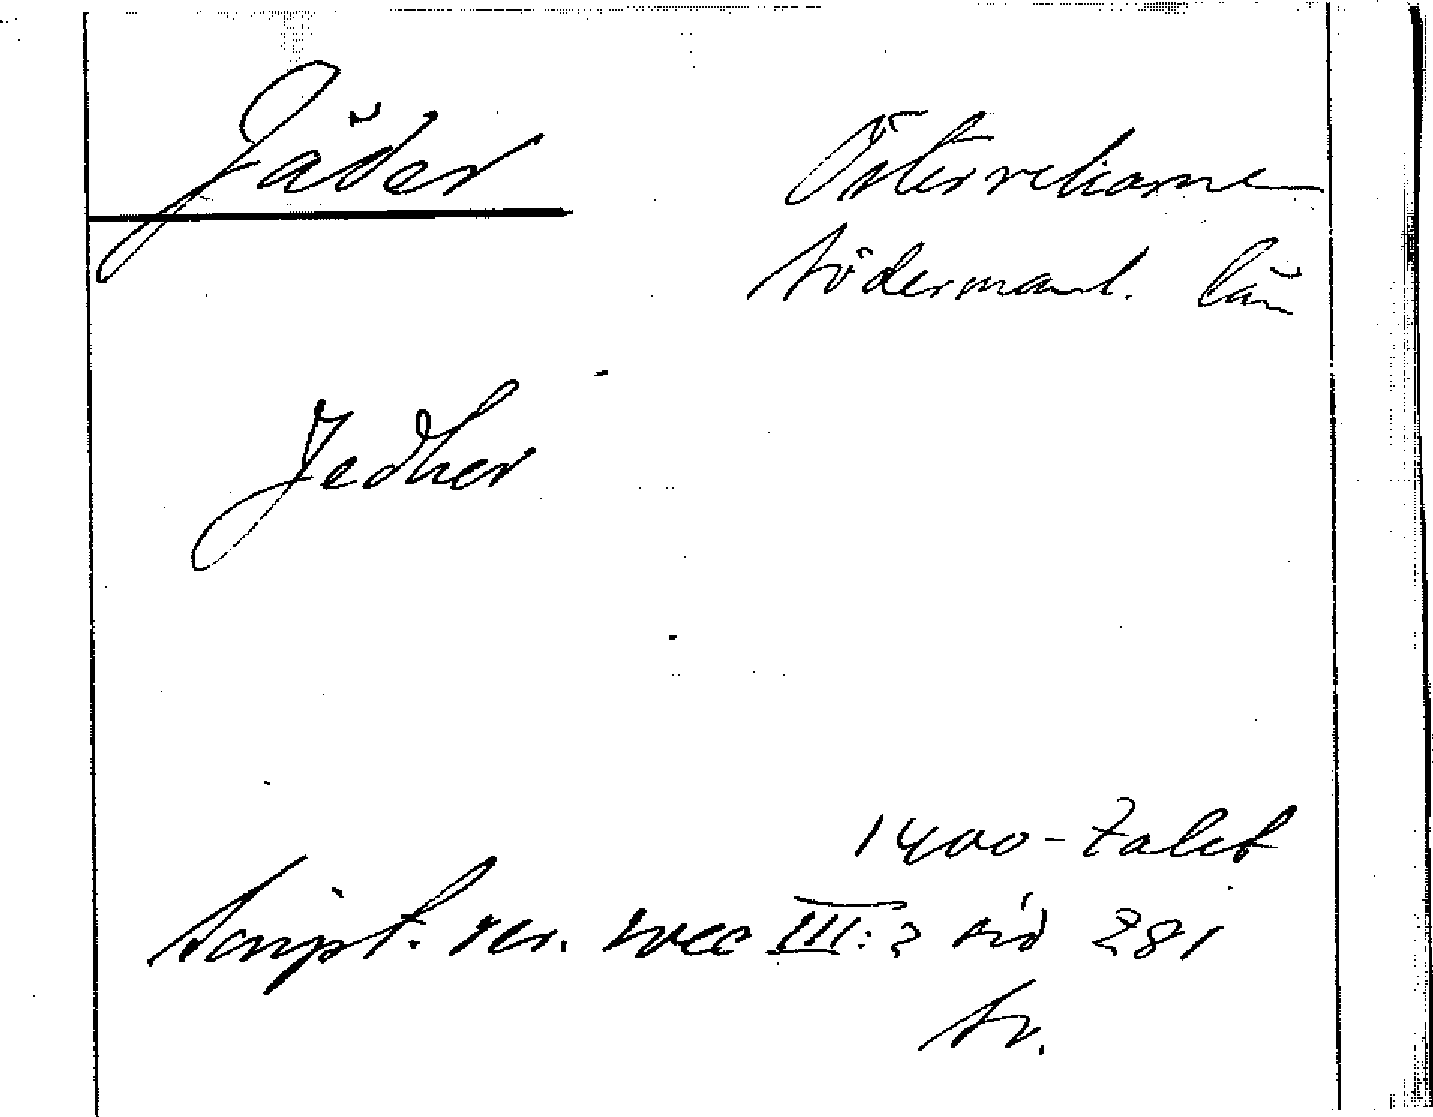 Jäder
Österrekarne
Södermanl. län
Jedher
1400-talet
Script. rer. svec III:2 sid 281
tr.